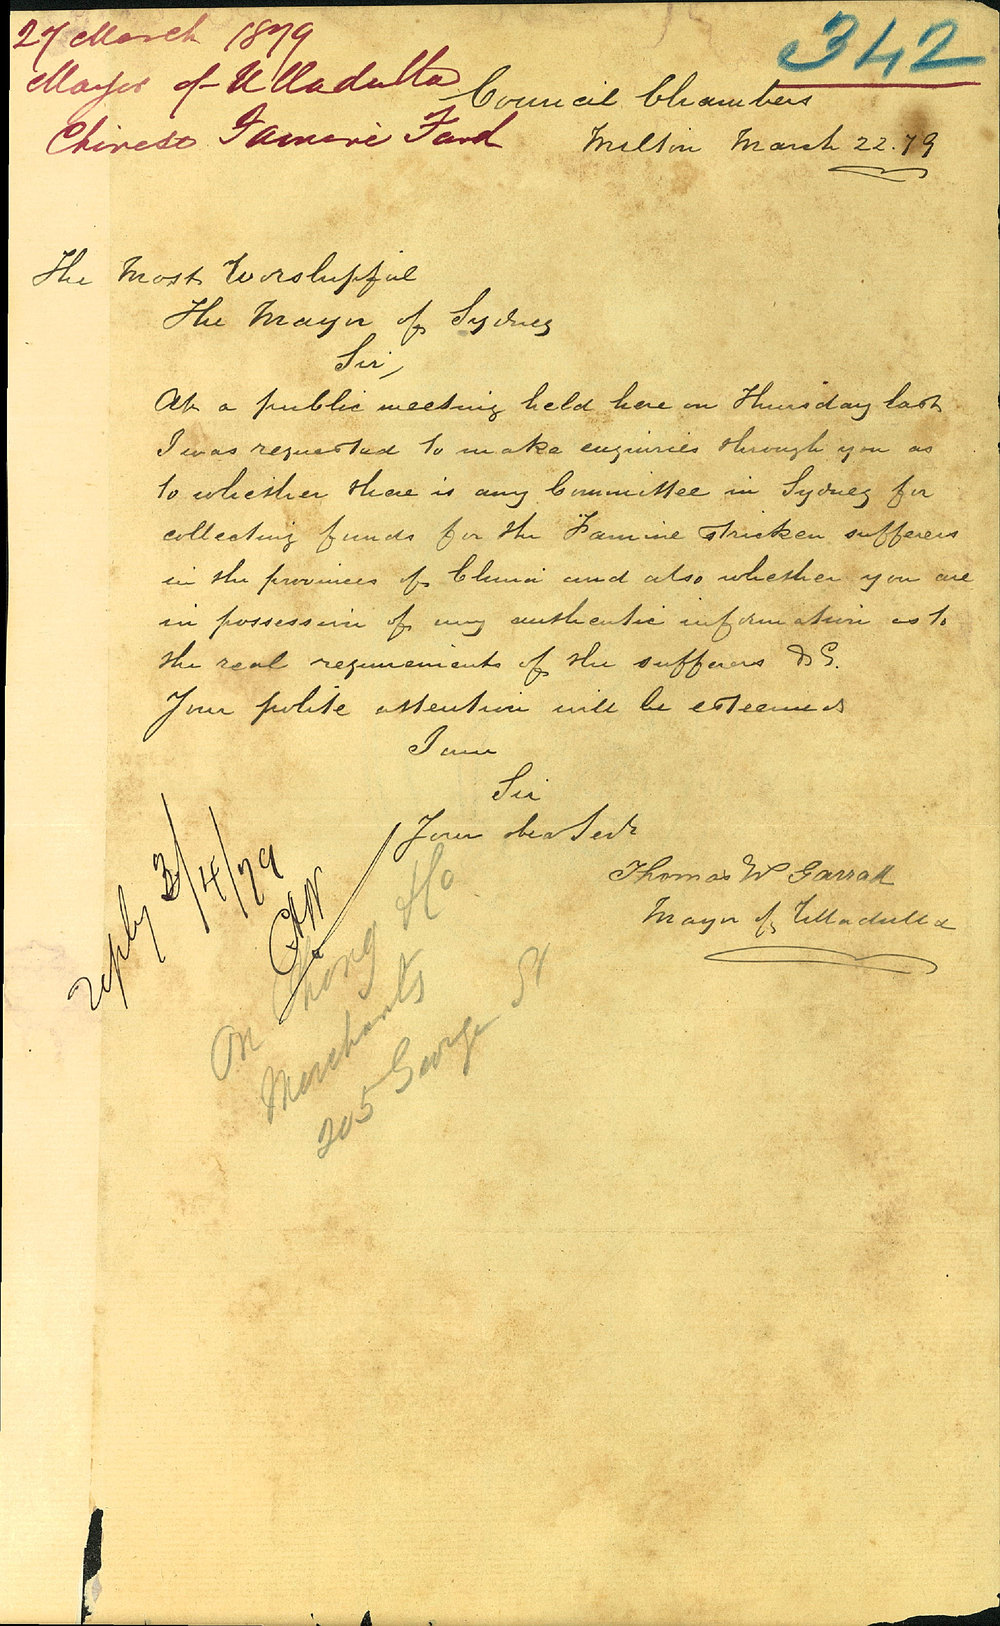 27 March 1879
Mayor of Ulladulla
Chinese Famine Fund
342
Council Chambers
Milton March 22.79
The Most Worshipful
The Mayor of Sydney
Sir,
At a public meeting held here on Thursday last
I was requested to make enquiries through you as
to whether there is any Committee in Sydney for
collecting funds for the Famine stricken sufferers
in the provinces of China and also whether you are
in possession of any authentic information as to
the real requirements of the sufferers &c.
Your polite attention will be esteemed
I am
Sir
Your obed Servt
Thomas W Garrad
Mayor of Ulladulla
reply 3/4/79
On Chong &Co
Merchants
205 George St